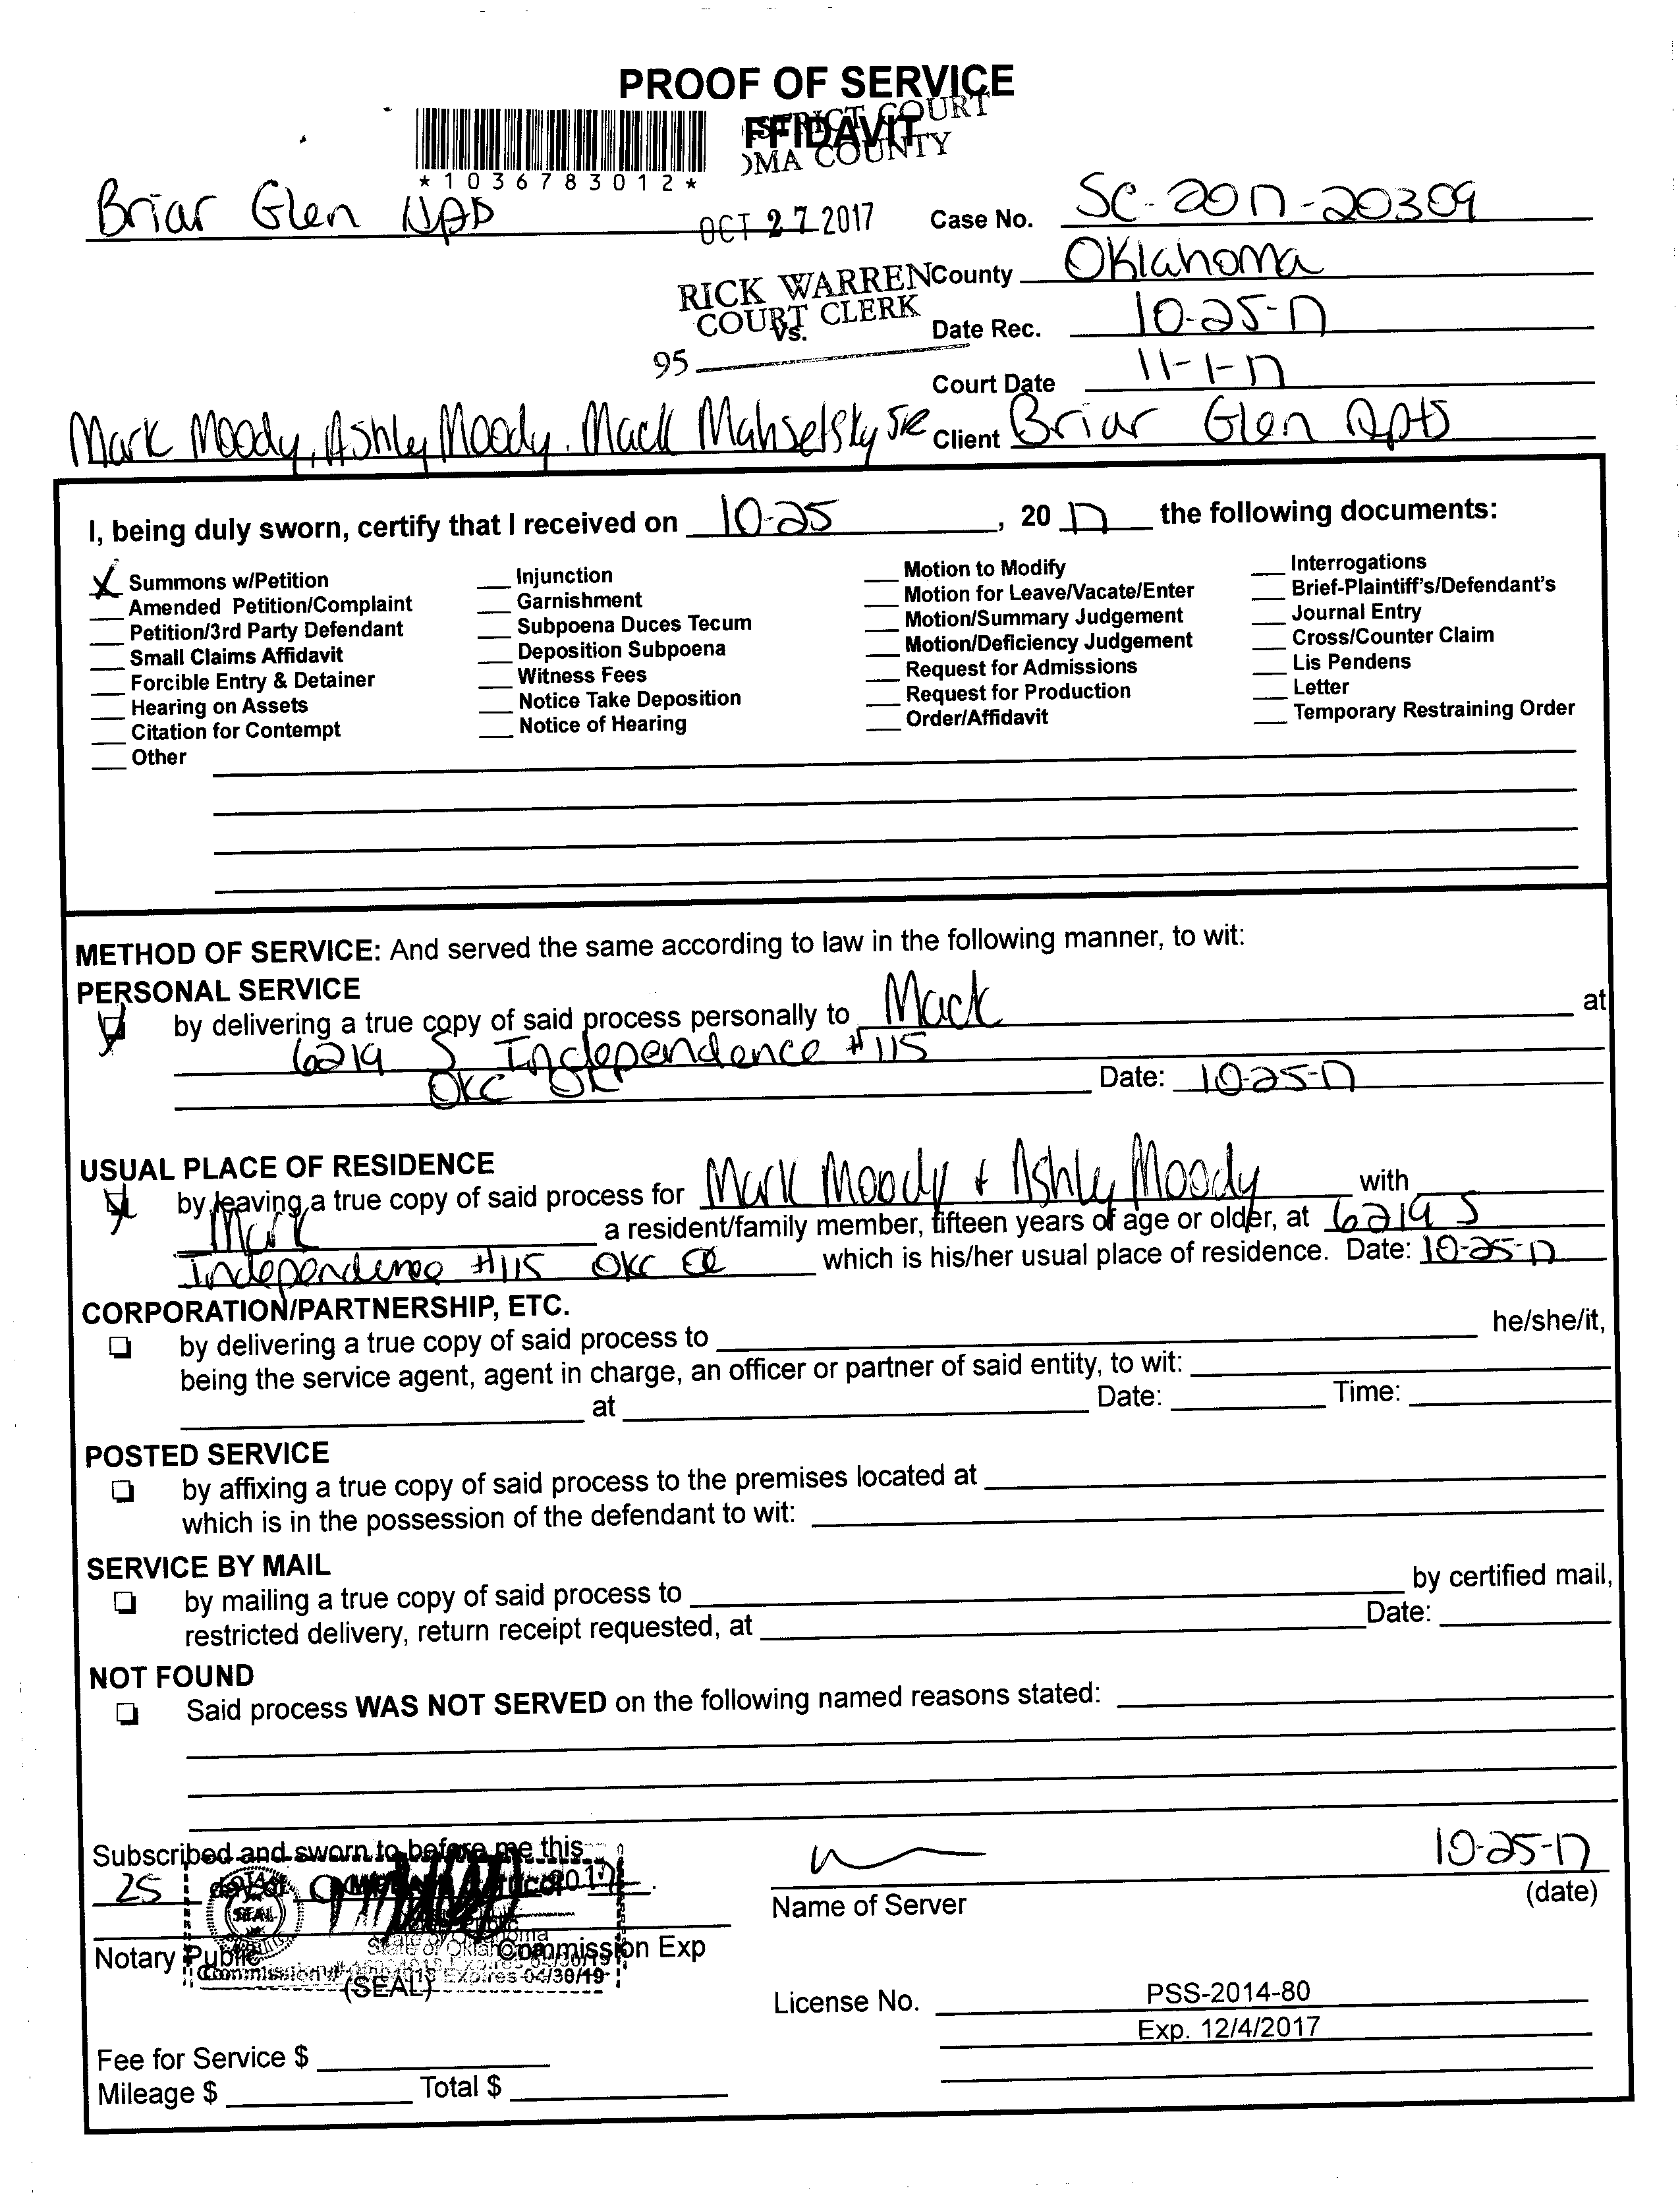 PROOF OF SERVICE
FFIDAVIT
STRICT COURT
OMA COUNTY
*1036783012*
Briar Glen
OCT 27 2017
Case No. SC-2017-20309
RICK WARREN
COURT CLERK
County Oklahoma
Vs.
Date Rec. 10-25-17
95
Court Date 11-1-17
Mark Moody, Ashley Moody. Mack Mahsetsky JR Client Briar Glen Apts
I, being duly sworn, certify that I received on 10-25, 20 17 the following documents:
X Summons w/Petition
Amended Petition/Complaint
Petition/3rd Party Defendant
Small Claims Affidavit
Forcible Entry & Detainer
Hearing on Assets
Citation for Contempt
Other
Injunction
Garnishment
Subpoena Duces Tecum
Deposition Subpoena
Witness Fees
Notice Take Deposition
Notice of Hearing
Motion to Modify
Motion for Leave/Vacate/Enter
Motion/Summary Judgement
Motion/Deficiency Judgement
Request for Admissions
Request for Production
Order/Affidavit
Interrogations
Brief-Plaintiff's/Defendant's
Journal Entry
Cross/Counter Claim
Lis Pendens
Letter
Temporary Restraining Order
METHOD OF SERVICE: And served the same according to law in the following manner, to wit:
PERSONAL SERVICE
by delivering a true copy of said process personally to Mack at
6219 S Independence #115
OKC OK Date: 10-25-17
USUAL PLACE OF RESIDENCE
by leaving a true copy of said process for Mark Moody + Ashley Moody with
Mark a resident/family member, fifteen years of age or older, at 6219 S
Independence #115 OKC OK which is his/her usual place of residence. Date: 10-25-17
CORPORATION/PARTNERSHIP, ETC.
by delivering a true copy of said process to he/she/it,
being the service agent, agent in charge, an officer or partner of said entity, to wit:
at Date: Time:
POSTED SERVICE
by affixing a true copy of said process to the premises located at
which is in the possession of the defendant to wit:
SERVICE BY MAIL
by mailing a true copy of said process to by certified mail,
restricted delivery, return receipt requested, at Date:
NOT FOUND
Said process WAS NOT SERVED on the following named reasons stated:
Subscribed and sworn to before me this
25 day of 2017.
SEAL
State of Oklahoma
Notary Public Commission Exp
Expires 04/30/19
(SEAL)
10-25-17
Name of Server (date)
License No. PSS-2014-80
Exp. 12/4/2017
Fee for Service $
Mileage $ Total $